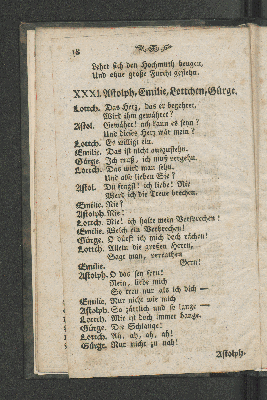 18
Lehrt sich den Hochmuth beugen,
Und ohne große Furcht gestehn.
XXXI. Astolph, Emilie, Lottchen, Gürge.
Lottch. Das Herz, das er begehret,
Wird ihm gewähret?
Astol. Gewähret! ach kann es seyn?
Und dieses Herz wär mein?
Lottch. Es williget ein.
Emilie. Das ist nicht auszustehn.
Gürge. Ich muß, ich muß vergehn.
Lottch. Das wird man sehn.
Und also lieben Sie?
Astol. Du fragst! ich liebe! Nie
Werd ich die Treue brechen.
Emilie. Nie?
Astolph. Nie!
Lottch. Nie! ich halte mein Versprechen!
Emilie. Welch ein Verbrechen!
Gürge. O dürft ich mich doch rächen!
Lottch. Allein die großen Herrn,
Sagt man, verrathen
Emilie. Gern!
Astolph. O das sey fern!
Nein, liebe mich
So treu nur als ich dich —
Emilie. Nur nicht wie mich
Astolph. So zärtlich und so lange —
Lottch. Mir ist doch immer bange.
Gürge. Die Schlange!
Lottch. Ah, ah, ah, ah!
Gürge. Nur nicht zu nah!
Astolph.